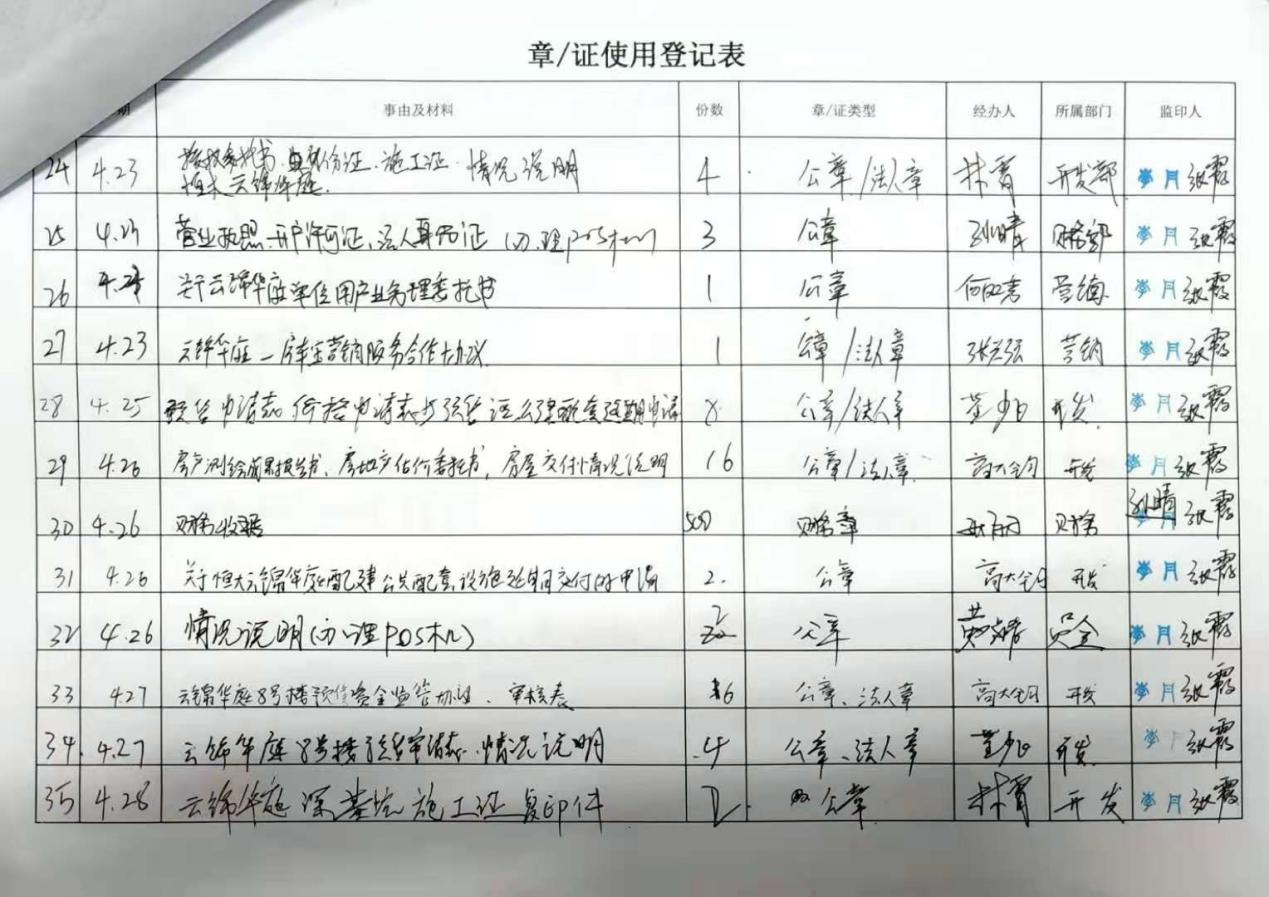 章/证使用登记表
期 事由及材料 份数 章/证类型 经办人 所属部门 监印人
24 4.23 授权委托书、身份证、施工证、情况说明 4 公章/法人章 林霄 开发部 李月 张霞
恒大云锦华庭
25 4.23 营业执照、开户许可证、法人身份证(办理POS机) 3 公章 孙晴 财务部 李月 张霞
26 4.25 关于云锦华庭单位用户业务办理委托书 1 公章 营销 李月 张霞
27 4.23 云锦华庭一房车营销服务合作协议 1 公章/法人章 营销 李月 张霞
28 4.25 预售申请表 价格申请表 公建配套延期申请 8 公章/法人章 董少白 开发 李月 张霞
29 4.26 房产测绘成果报告书、房地产估价委托书、房屋交付情况说明 16 公章/法人章 高大钧 开发 李月 张霞
30 4.26 财务收据 500 财务章 财务 孙晴 李月 张霞
31 4.26 关于恒大云锦华庭配建公共配套设施延期交付的申请 2 公章 高大钧 开发 李月 张霞
32 4.26 情况说明(办理POS机) 2 公章 资金 李月 张霞
33 4.27 云锦华庭8号楼预售资金监管协议、审核表 16 公章、法人章 高大钧 开发 李月 张霞
34 4.27 云锦华庭8号楼预售申请表、情况说明 4 公章、法人章 董少白 开发 李月 张霞
35 4.28 云锦华庭深基坑施工证复印件 2 公章 林霄 开发 李月 张霞